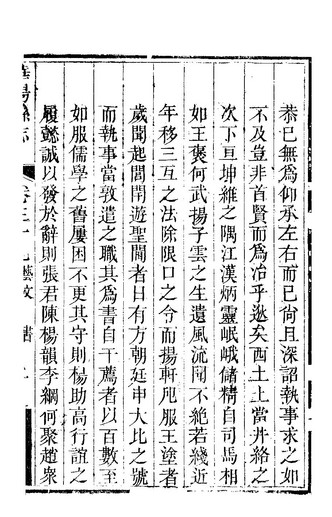 恭已無為仰承左右而已尚且深詔執事求之如
不及豈非首賢而為治乎逖矣西土上當井絡之
次下亘坤維之隅江漢炳靈岷峨儲精自司馬相
如王褒何武揚子雲之生遺風流聞不絶若綫近
年移三互之法除限口之令而揚軒凫服王塗者
歲聞起閭閈遊聖閶者日有方朝廷申大比之號
而執事當敦遣之職其為書自干薦者以百數至
如服儒學之舊屢困不更其守則楊助高行誼之
履懿誠以發於辭則張君陳楊韻李綱何聚趙衆
卷三十九藝文 書 九